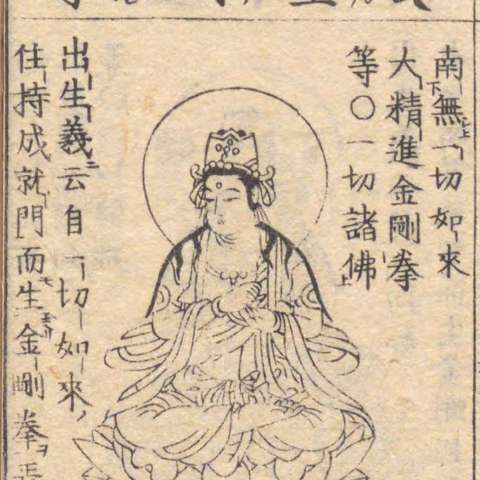 南無一切如来
大精進金剛拳
等〇一切諸佛
出生義云自一切如来
住持成就門而生金剛拳